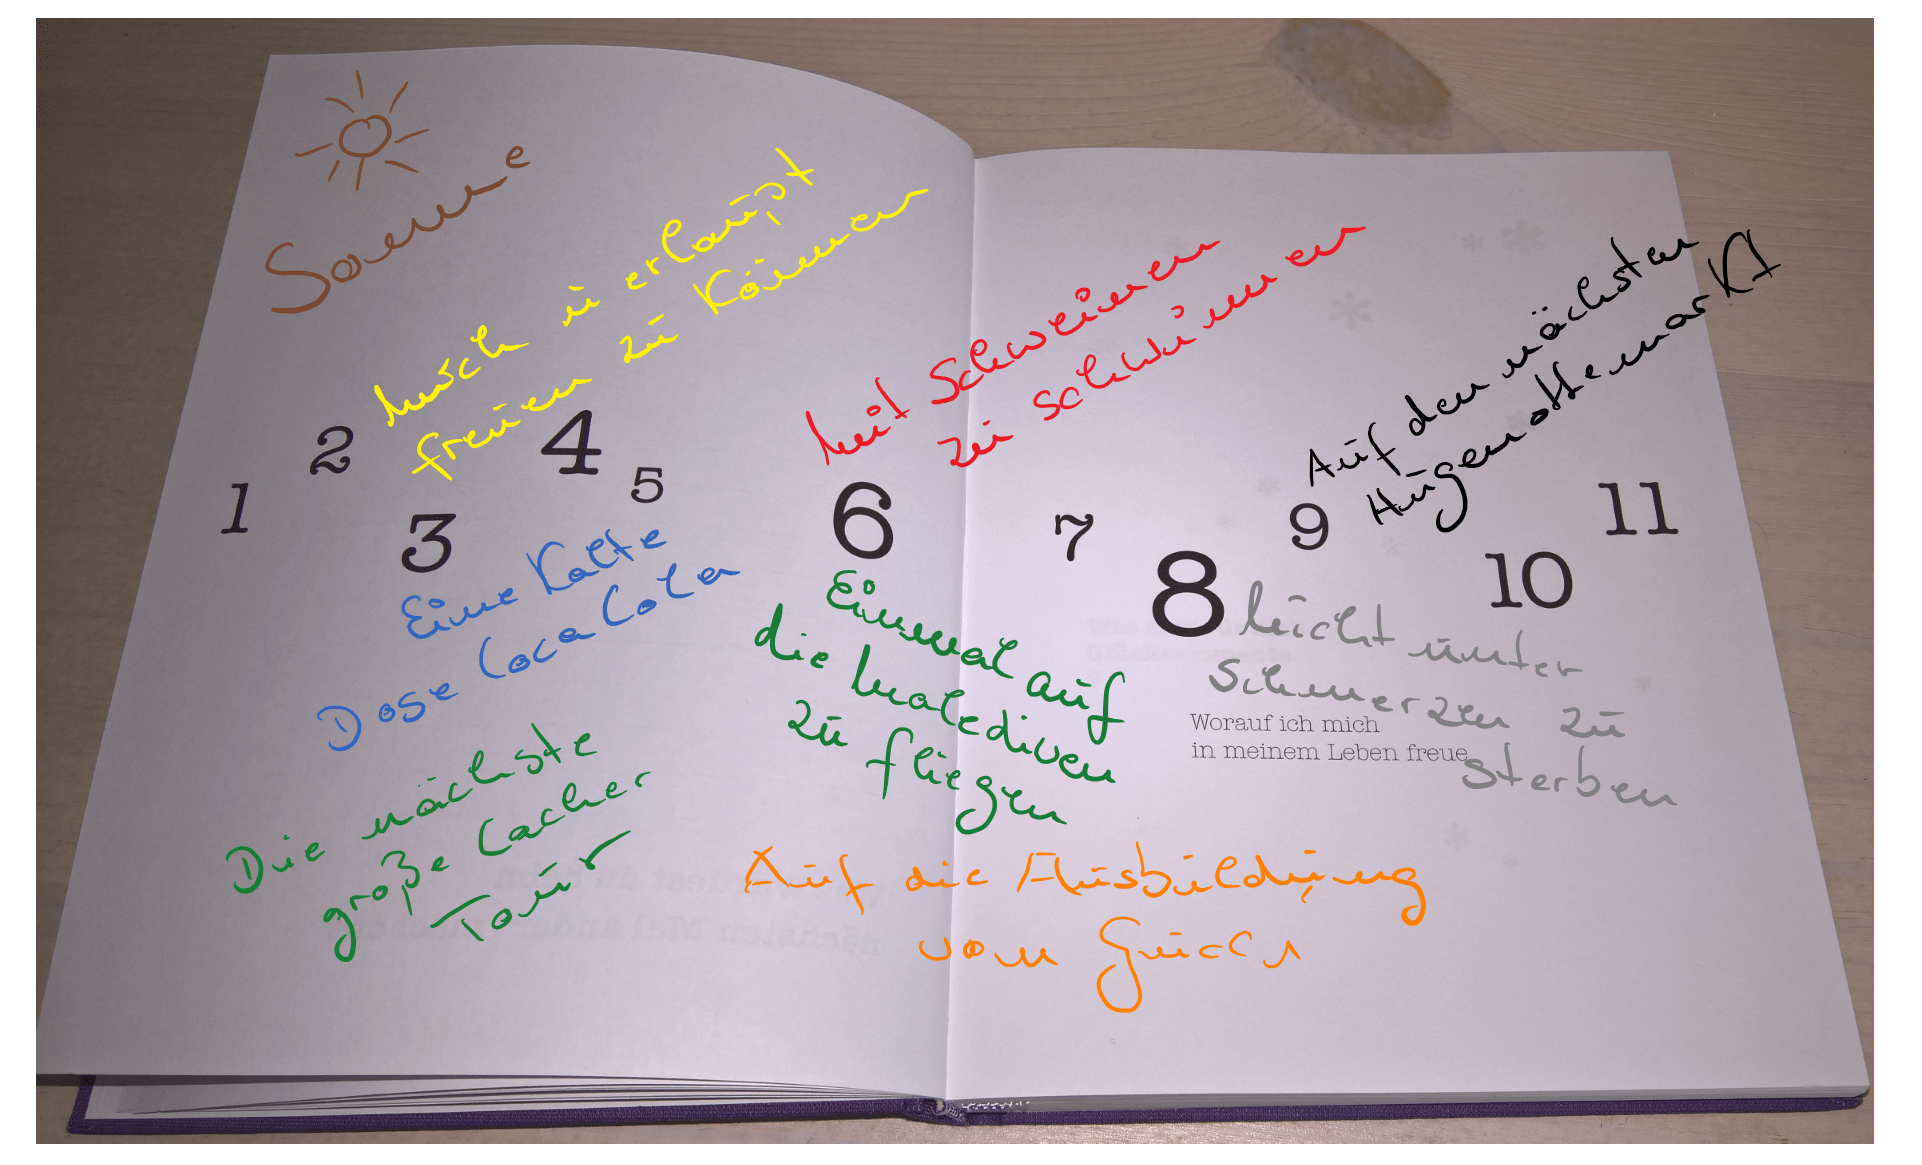 Sonne
Mich überhaupt
freuen zu Können
Mit Schweinen
zu schwimmen
Auf den nächsten
Hugenottenmarkt
1 2 3 4 5 6 7 8 9 10 11
Eine Kalte
Dose Coca Cola
Einmal auf
die Malediven
zu fliegen
Nicht unter
Schmerzen zu
sterben
Worauf ich mich
in meinem Leben freue
Die nächste
große Cacher
Tour
Auf die Ausbildung
von